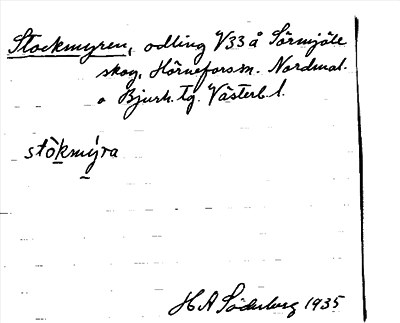 Stockmyren, odling V33 å Sörmjöle
skog, Hörneforsm. Nordmal.
o Bjurh. Tg. Västerb. l.
stòkmýra
H A Söderberg 1935